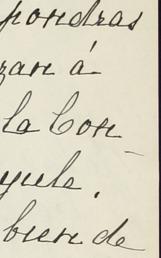 pondras
zan á
la Con-
yula.
bien de